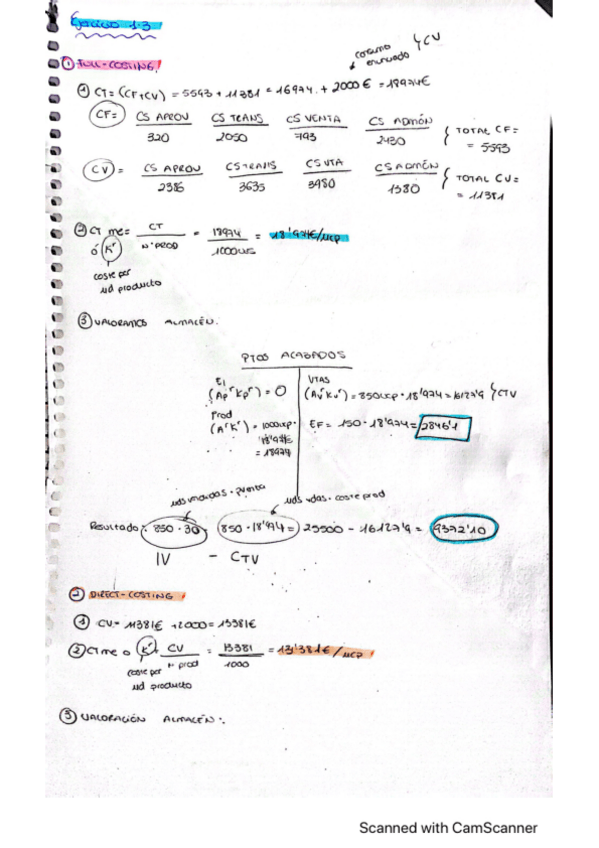 Ejercicio 1.3
① FULL-COSTING
consumo envasado } CV
① CT = (CF+CV) = 5593 + 11381 = 16974 + 2000€ = 18974€
CF = CS APROV CS TRANS CS VENTA CS ADMÓN { TOTAL CF =
320 2050 793 2430 = 5593
CV = CS APROV CS TRANS CS VTA CS ADMÓN { TOTAL CV =
2386 3635 3980 1380 = 11381
② CT me = CT / Nº PROD = 18974 / 1000 = 18'974€/ucp
ó K"
coste por
ud producto
③ VALORAMOS ALMACÉN.
PTOS ACABADOS
EI VTAS
(Ap" Kp") = 0 (Av" Kv") = 850ucp · 18'974 = 16127'9 } CTV
Prod
(A" K") = 1000ucp · EF = 150 · 18'974 = 2846'1
18'974€
= 18974
uds vendidas · pventa uds vdas · coste prod
Resultado: 850 · 30 - 850 · 18'974 = 25500 - 16127'9 = 9372'10
IV - CTV
② DIRECT-COSTING
① CV = 11381€ + 2000 = 13381€
② CT me o K" = CV / nº prod = 13381 / 1000 = 13'381€/ucp
coste por
ud producto
③ VALORACIÓN ALMACÉN:
Scanned with CamScanner